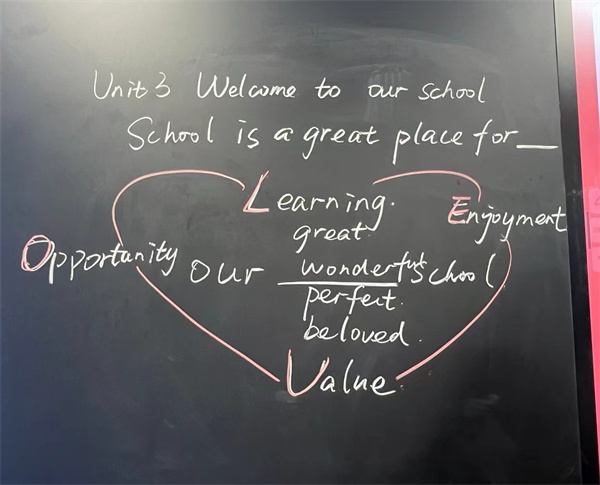 Unit 3 Welcome to our school
School is a great place for __
Learning.
great
Enjoyment
Opportunity our wonderful School
perfect.
beloved.
Value.